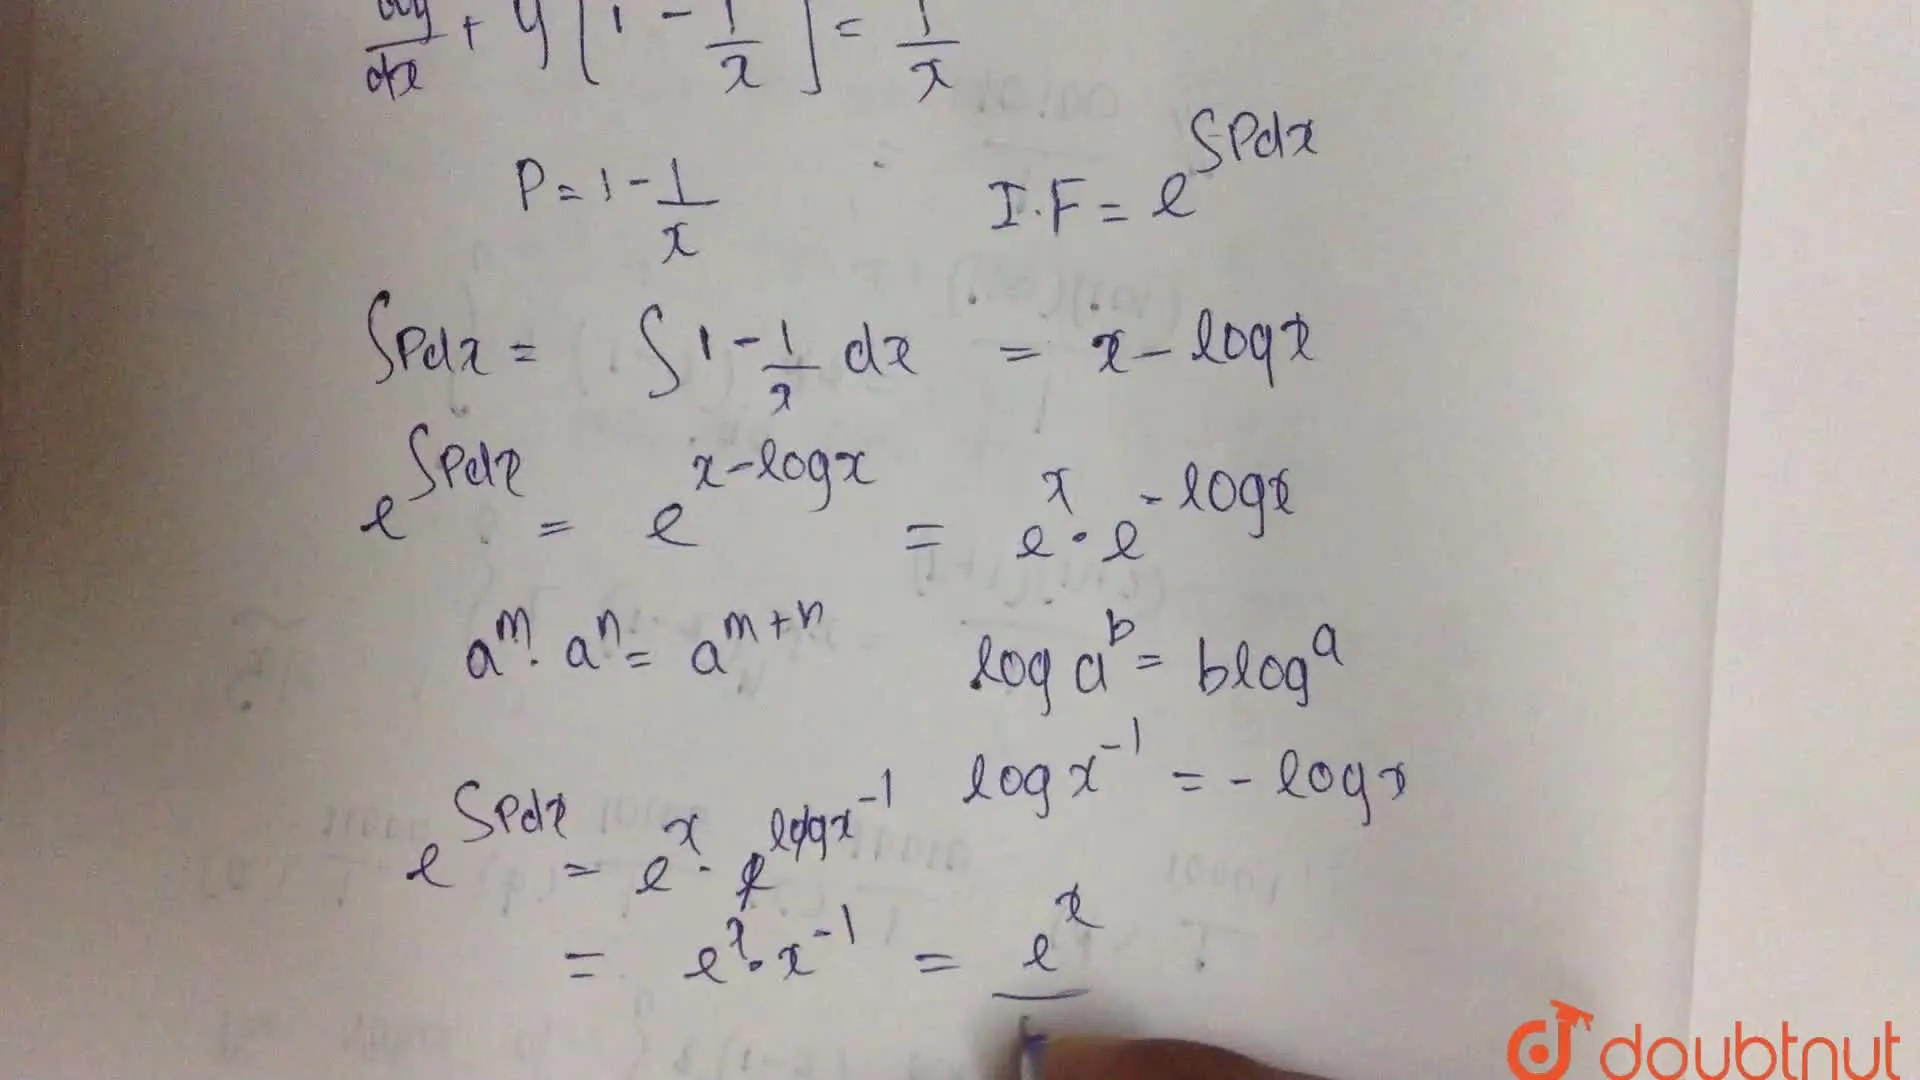 dy/dx + y[1 - 1/x] = 1/x
P = 1 - 1/x I.F = e^∫Pdx
∫Pdx = ∫ 1 - 1/x dx = x - logx
e^∫Pdx = e^x-logx = e^x . e^-logx
a^m . a^n = a^m+n log a^b = blog^a
log x^-1 = - logx
e^∫Pdx = e^x . e^logx^-1
= e^x . x^-1 = e^x
doubtnut